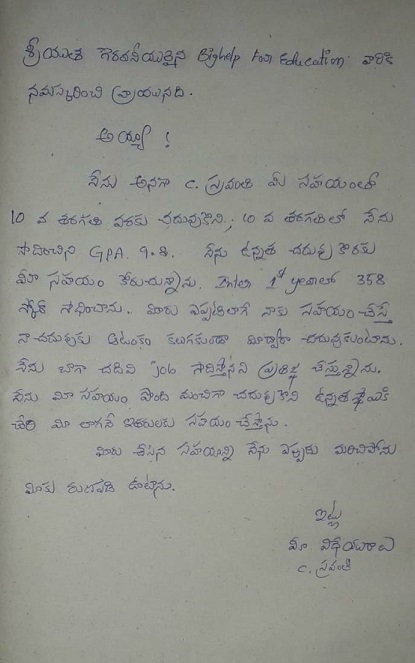 శ్రీయుత గౌరవనీయులైన Bighelp For Education వారికి
నమస్కరించి వ్రాయునది.
అయ్యా !
నేను అనగా C. స్రవంతి మీ సహయంతో
10 వ తరగతి వరకు చదువుకొని, 10 వ తరగతిలో నేను
సాదించిన GPA 9.8. నేను ఉన్నత చదువు కొరకు
మీ సహయం కోరుచున్నాను. Inter 1st yearలో 358
స్కోర్ సాధించాను. మీరు ఎప్పటిలాగే నాకు సహయం చేస్తే
నా చదువుకు ఆటంకం కలుగకుండా చదువుకుంటాను.
నేను బాగా చదివి job సాదిస్తానని ప్రతిజ్ఞ చేస్తున్నాను.
నేను మీ సహయం పొంది మంచిగా చదువుకొని ఉన్నత స్థాయికి
చేరి మీ లాగనే ఇతరులకు సహయం చేస్తాను.
మీరు చేసిన సహయాన్ని నేను ఎప్పుడు మరిచిపోను
మీకు రుణపడి ఉంటాను.
ఇట్లు
మీ విధేయురాలు
C. స్రవంతి